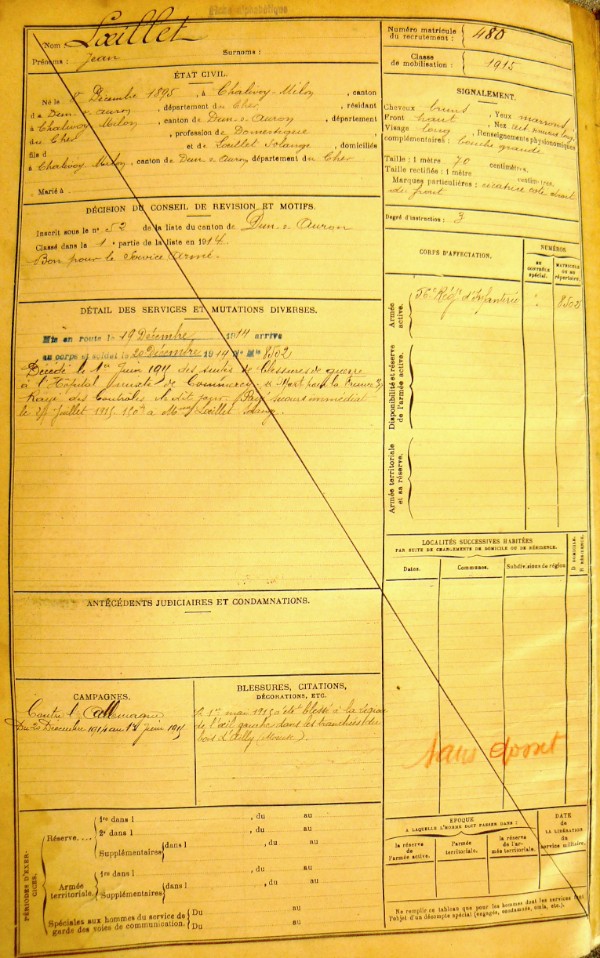 Nom : Lœillet
Prénoms : Jean Surnoms :
Numéro matricule du recrutement : 480
Classe de mobilisation : 1915
ÉTAT CIVIL.
Né le Décembre 1895, à Chalivoy-Milon, canton
de Dun-s-Auron, département du Cher, résidant
à Chalivoy Milon, canton de Dun-s-Auron, département
du Cher, profession de Domestique
fils d et de Lœillet Solange, domiciliés
à Chalivoy Milon, canton de Dun-s-Auron département du Cher
Marié à
SIGNALEMENT.
Cheveux bruns, Yeux marrons
Front haut, Nez
Visage long, Renseignements physionomiques
complémentaires : bouche grande
Taille : 1 mètre 70 centimètres.
Taille rectifiée : 1 mètre centimètres.
Marques particulières : cicatrice coté
de front
Degré d'instruction : 3
DÉCISION DU CONSEIL DE RÉVISION ET MOTIFS.
Inscrit sous le n° 52 de la liste du canton de Dun-s-Auron
Classé dans la 1e partie de la liste en 1914
Bon pour le Service Armé.
DÉTAIL DES SERVICES ET MUTATIONS DIVERSES.
Mis en route le 19 Décembre 1914 arrivé
au corps et soldat le 20 Décembre 1914 N° Mle 8502
Décédé le 1er Juin 1915 des suites de blessures de guerre
à l'Hôpital de Commercy. Mort pour la France
Rayé des Contrôles le dit jour. Payé secours immédiat
le Juillet 1915 150f à Mme Lœillet Solange.
CORPS D'AFFECTATION.
NUMÉROS
au contrôle spécial.
matricule ou au répertoire.
Armée active.
56e Régt d'Infanterie
8502
Disponibilité et réserve de l'armée active.
Armée territoriale et sa réserve.
LOCALITÉS SUCCESSIVES HABITÉES
PAR SUITE DE CHANGEMENTS DE DOMICILE OU DE RÉSIDENCE.
Dates. Communes. Subdivisions de région D. DOMICILE. R. RÉSIDENCE.
ANTÉCÉDENTS JUDICIAIRES ET CONDAMNATIONS.
CAMPAGNES.
Contre l'Allemagne
Du 20 Décembre 1914 au 1er juin 1915
BLESSURES, CITATIONS,
DÉCORATIONS, ETC.
le 1er mai 1915 a été blessé à la région
de l'œil gauche dans les tranchées du
bois d'Ailly (Meuse).
sans
PÉRIODES D'EXERCICES.
Réserve
1re dans l , du au
2e dans l , du au
Supplémentaires dans l , du au
, du au
Armée territoriale.
1re dans l , du au
Supplémentaires dans l , du au
, du au
Spéciales aux hommes du service de garde des voies de communication.
Du au
Du au
ÉPOQUE
A LAQUELLE L'HOMME DOIT PASSER DANS :
la réserve de l'armée active.
l'armée territoriale.
la réserve de l'armée territoriale.
DATE de LA LIBÉRATION du service militaire.
Ne remplir ce tableau que pour les hommes dont les services font
l'objet d'un décompte spécial (engagés, condamnés, omis, etc.).